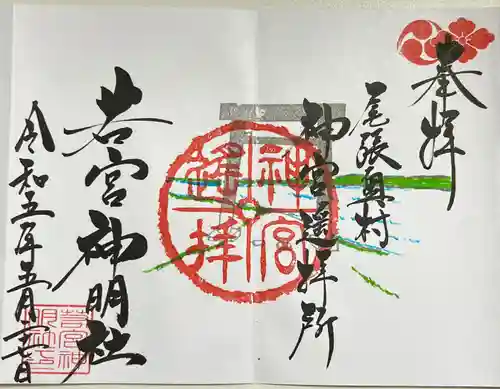 奉拝
尾張奥村
神宮遥拝所
神宮
遥拝
若宮神明社
若宮神
明社之
令和五年五月二十七日